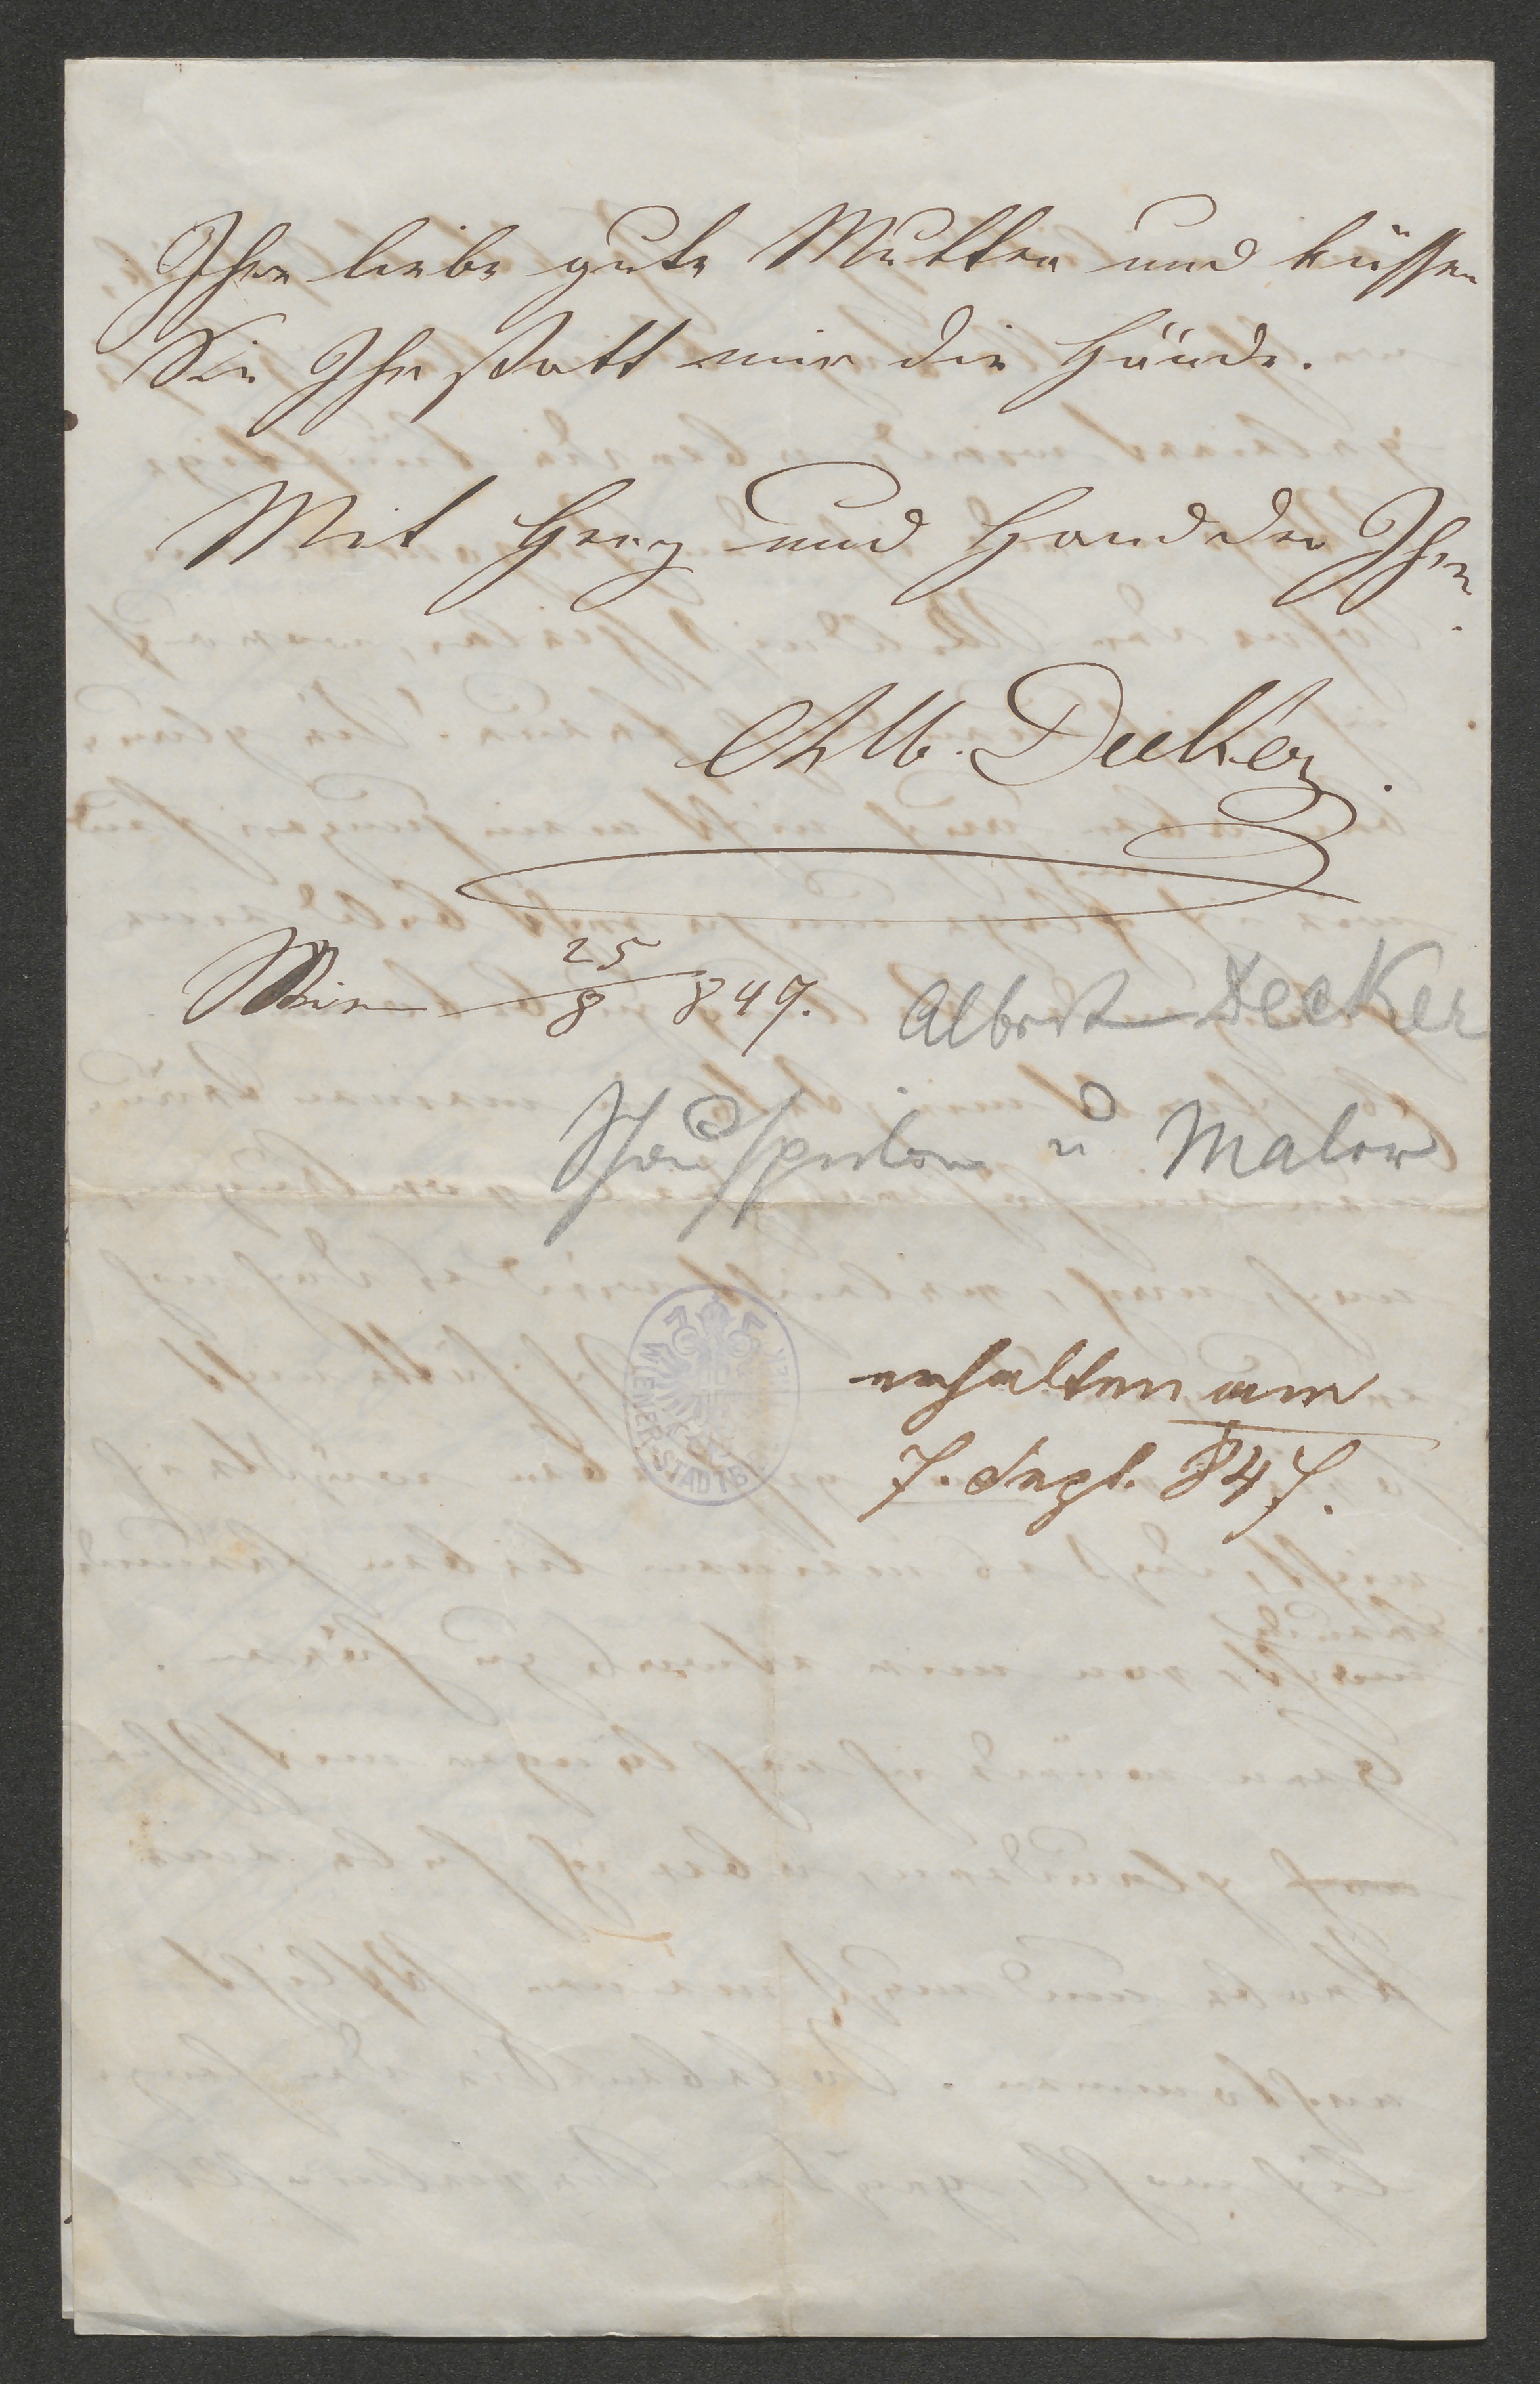 Ihre liebe gute Mutter und küssen
Sie Ihr statt mir die Hände.
Mit Herz und Hand der Ihre.
Alb. Decker.
Wien 25/8 847.
Albert Decker
Schauspieler u Maler
WIENER STADTB
erhalten am
7. Sept. 847.